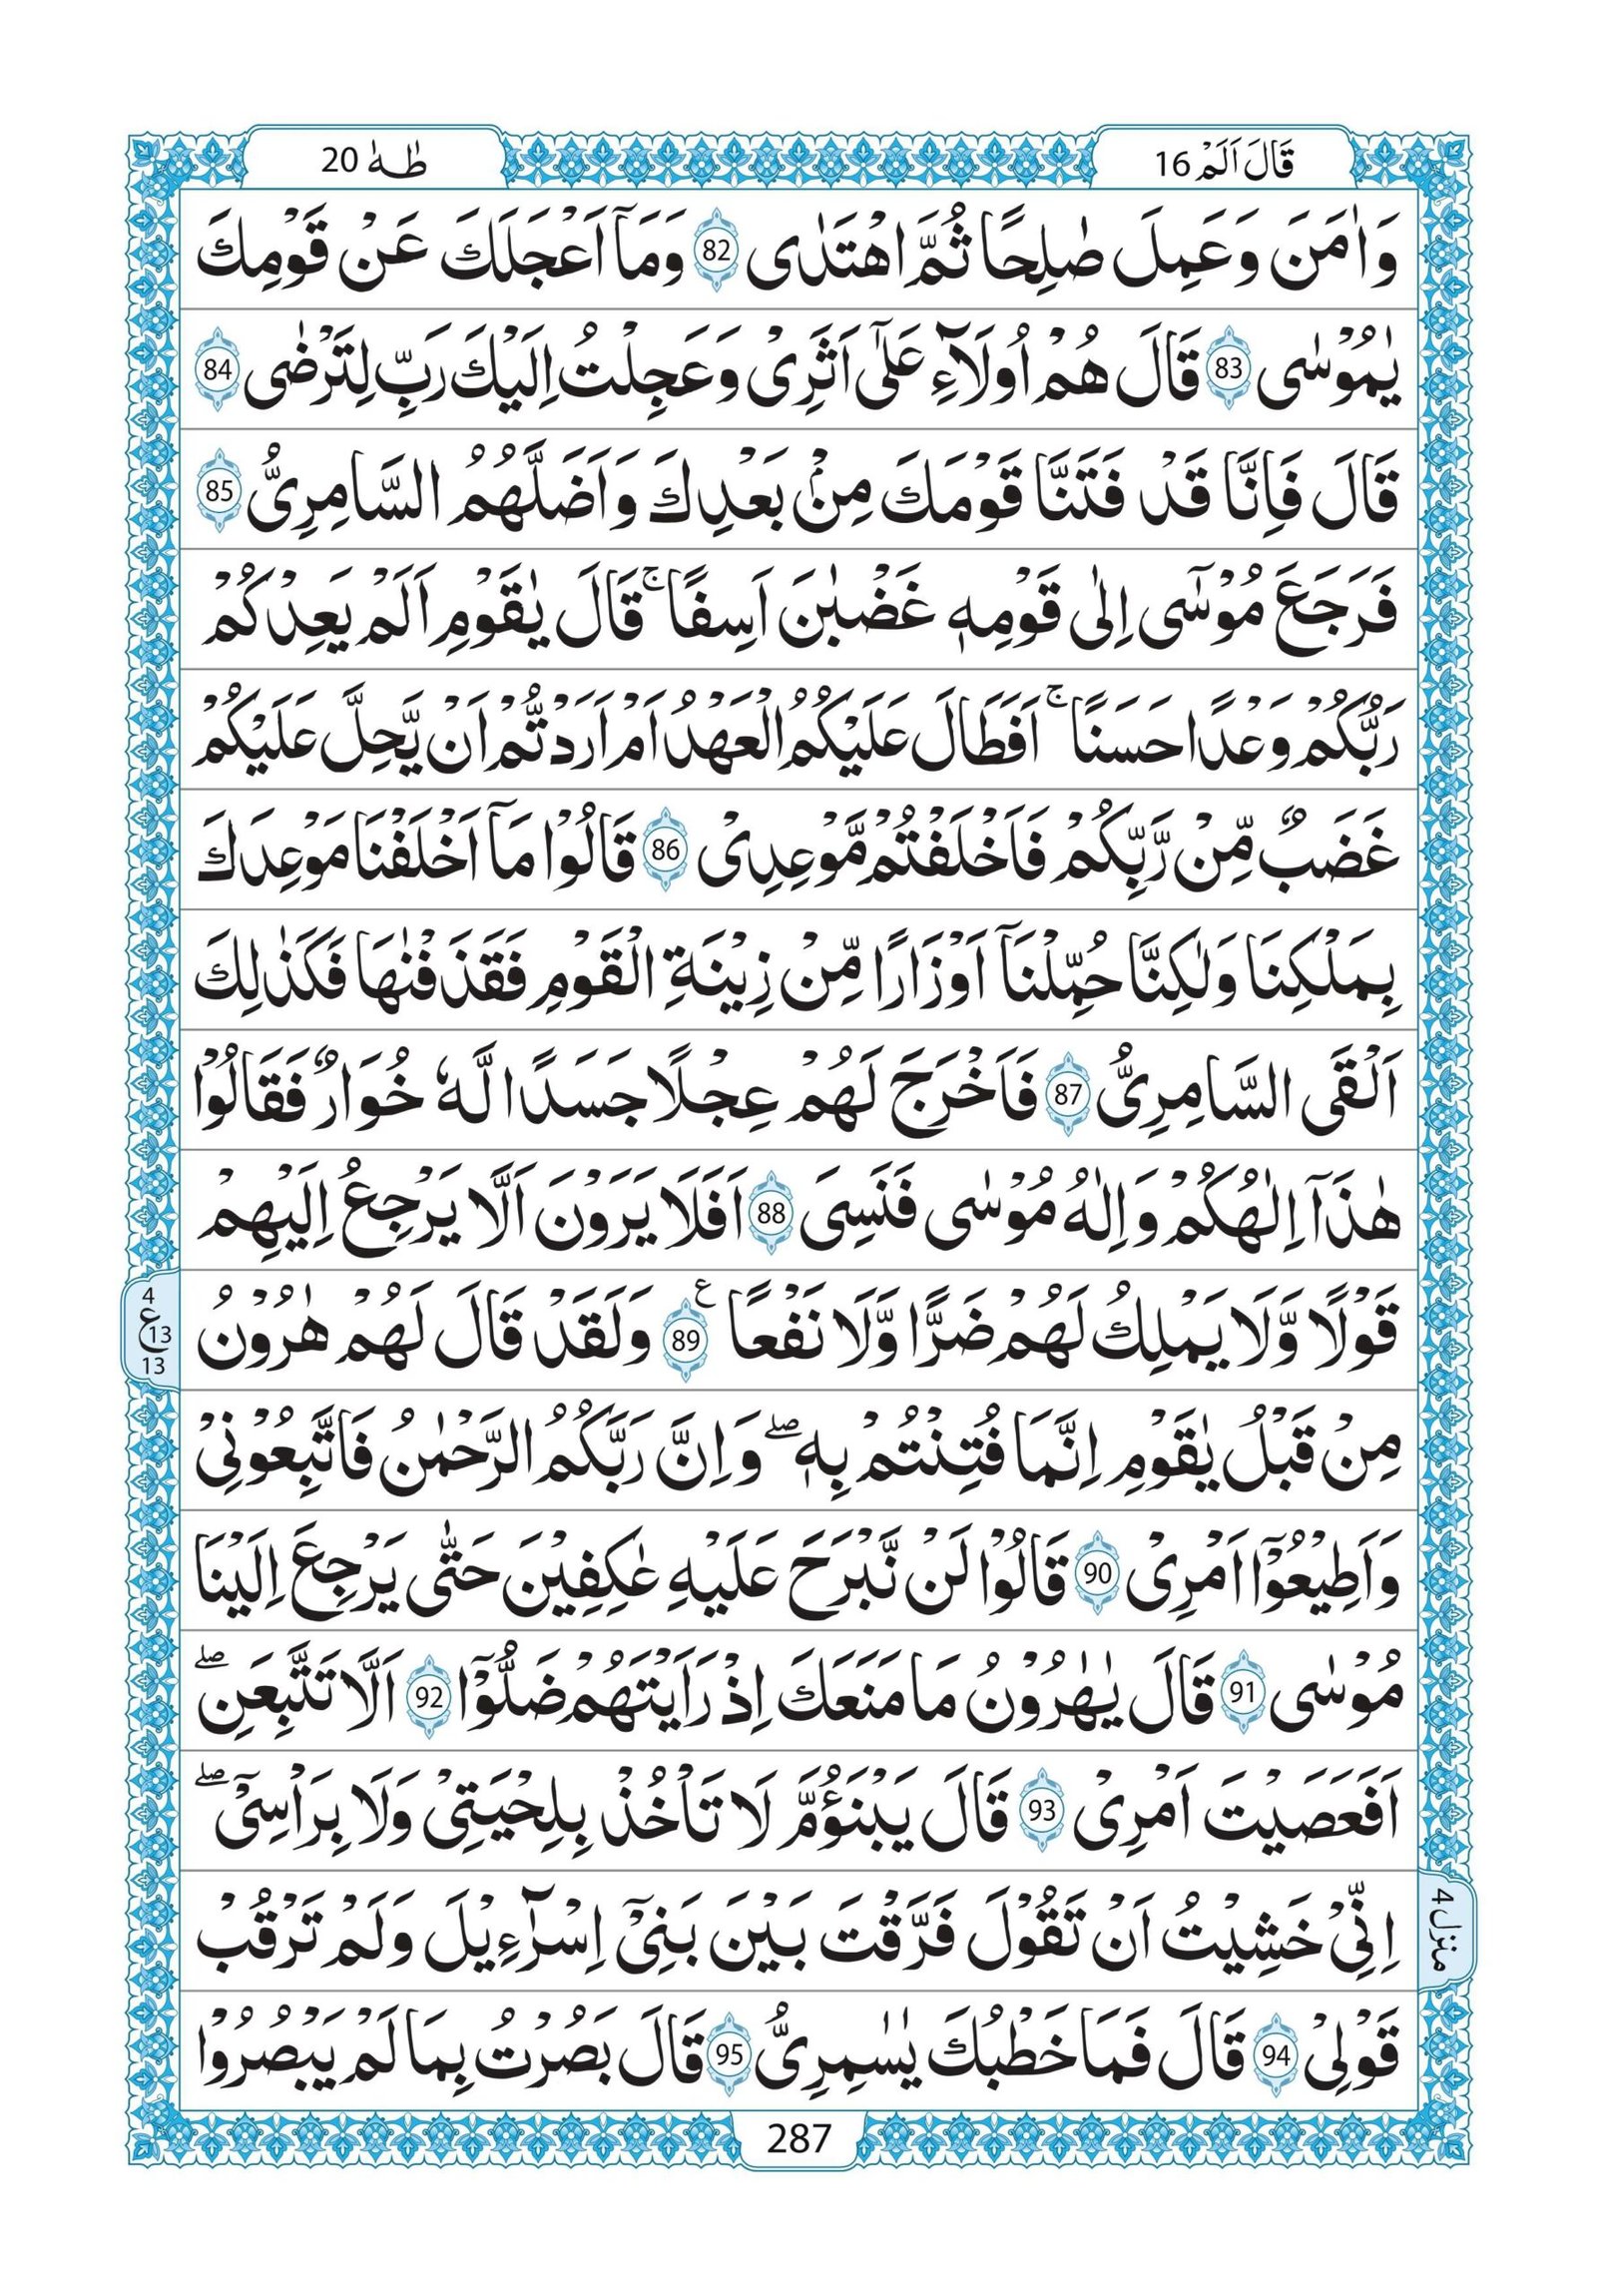 قَالَ اَلَمْ 16
طٰهٰ 20
وَاٰمَنَ وَعَمِلَ صٰلِحًا ثُمَّ اهْتَدٰى 82 وَمَآ اَعْجَلَكَ عَنْ قَوْمِكَ
يٰمُوْسٰى 83 قَالَ هُمْ اُولَآءِ عَلٰٓى اَثَرِىْ وَعَجِلْتُ اِلَيْكَ رَبِّ لِتَرْضٰى 84
قَالَ فَاِنَّا قَدْ فَتَنَّا قَوْمَكَ مِنْۢ بَعْدِكَ وَاَضَلَّهُمُ السَّامِرِىُّ 85
فَرَجَعَ مُوْسٰٓى اِلٰى قَوْمِهٖ غَضْبٰنَ اَسِفًا ۚ قَالَ يٰقَوْمِ اَلَمْ يَعِدْكُمْ
رَبُّكُمْ وَعْدًا حَسَنًا ۚ اَفَطَالَ عَلَيْكُمُ الْعَهْدُ اَمْ اَرَدْتُّمْ اَنْ يَّحِلَّ عَلَيْكُمْ
غَضَبٌ مِّنْ رَّبِّكُمْ فَاَخْلَفْتُمْ مَّوْعِدِىْ 86 قَالُوْا مَآ اَخْلَفْنَا مَوْعِدَكَ
بِمَلْكِنَا وَلٰكِنَّا حُمِّلْنَآ اَوْزَارًا مِّنْ زِيْنَةِ الْقَوْمِ فَقَذَفْنٰهَا فَكَذٰلِكَ
اَلْقَى السَّامِرِىُّ 87 فَاَخْرَجَ لَهُمْ عِجْلًا جَسَدًا لَّهٗ خُوَارٌ فَقَالُوْا
هٰذَآ اِلٰهُكُمْ وَاِلٰهُ مُوْسٰى فَنَسِىَ 88 اَفَلَا يَرَوْنَ اَلَّا يَرْجِعُ اِلَيْهِمْ
قَوْلًا وَّلَا يَمْلِكُ لَهُمْ ضَرًّا وَّلَا نَفْعًا ع 89 وَلَقَدْ قَالَ لَهُمْ هٰرُوْنُ
4
ع 13
13
مِنْ قَبْلُ يٰقَوْمِ اِنَّمَا فُتِنْتُمْ بِهٖ ۖ وَاِنَّ رَبَّكُمُ الرَّحْمٰنُ فَاتَّبِعُوْنِىْ
وَاَطِيْعُوْٓا اَمْرِىْ 90 قَالُوْا لَنْ نَّبْرَحَ عَلَيْهِ عٰكِفِيْنَ حَتّٰى يَرْجِعَ اِلَيْنَا
مُوْسٰى 91 قَالَ يٰهٰرُوْنُ مَا مَنَعَكَ اِذْ رَاَيْتَهُمْ ضَلُّوْٓا 92 اَلَّا تَتَّبِعَنِ ۖ
اَفَعَصَيْتَ اَمْرِىْ 93 قَالَ يَبْنَؤُمَّ لَا تَاْخُذْ بِلِحْيَتِىْ وَلَا بِرَاْسِىْ ۖ
اِنِّىْ خَشِيْتُ اَنْ تَقُوْلَ فَرَّقْتَ بَيْنَ بَنِىْٓ اِسْرَآءِيْلَ وَلَمْ تَرْقُبْ
منزل 4
قَوْلِىْ 94 قَالَ فَمَا خَطْبُكَ يٰسٰمِرِىُّ 95 قَالَ بَصُرْتُ بِمَا لَمْ يَبْصُرُوْا
287